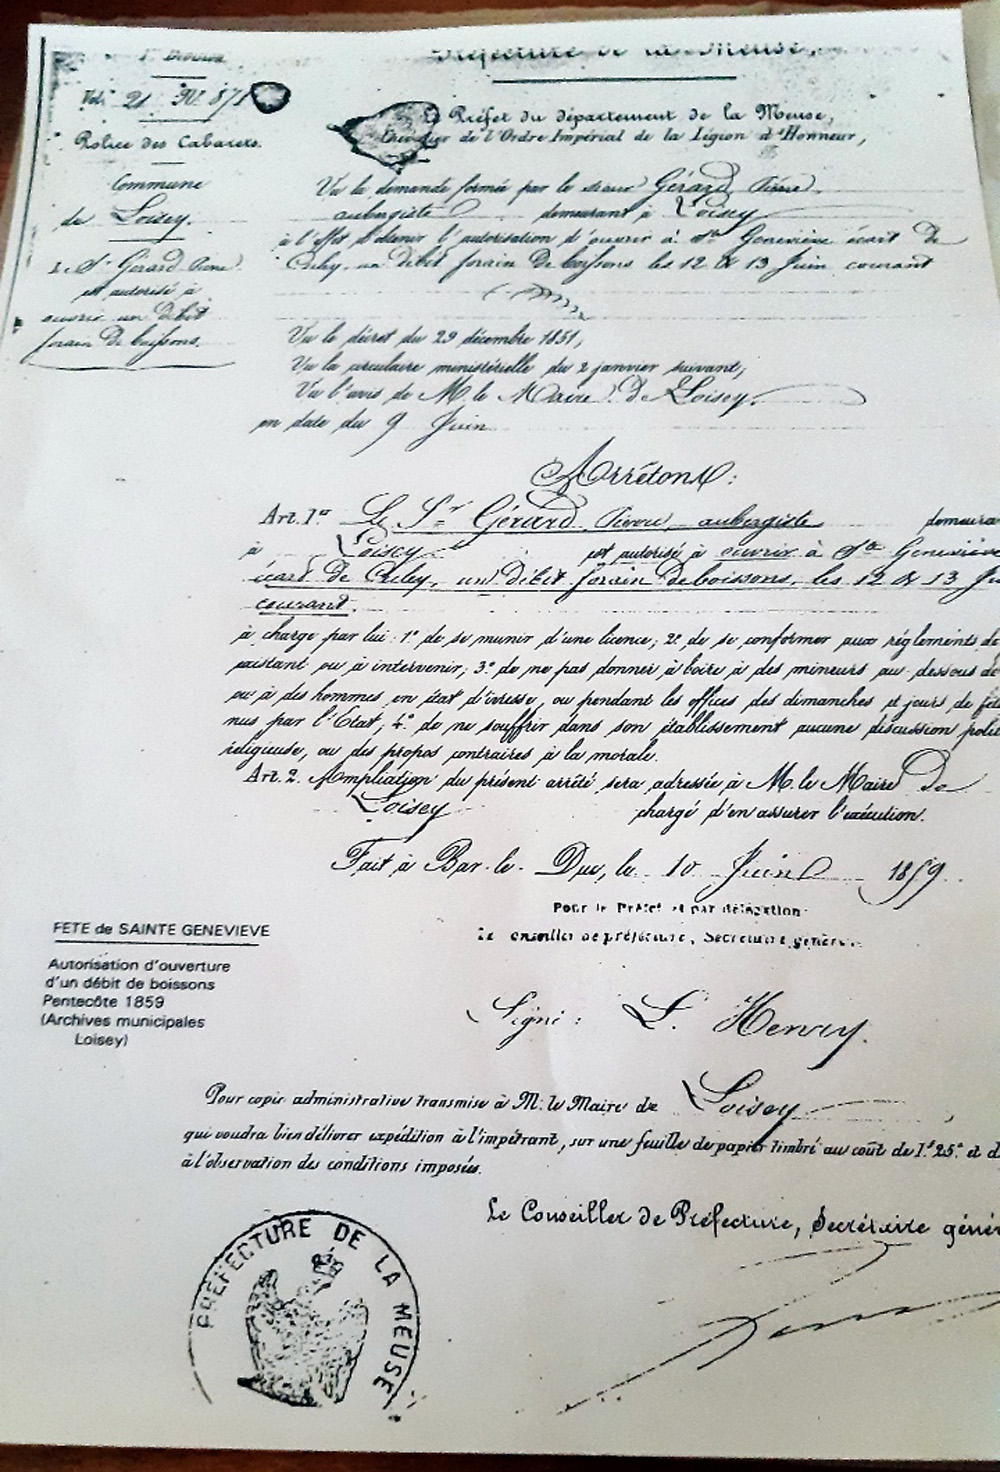 Préfecture de la Meuse,
Vol. 21 N° 871
Police des Cabarets.
Commune
de Loisey.
Le Sr Gérard Pierre
est autorisé à
ouvrir un débit
forain de boissons.
Préfet du département de la Meuse,
de l'Ordre Impérial de la Légion d'Honneur,
Vu la demande formée par le sieur Gérard Pierre
aubergiste demeurant à Loisey
à l'effet d'obtenir l'autorisation d'ouvrir à Ste Geneviève écart de
Culey, un débit forain de boissons les 12 & 13 Juin courant
Vu le décret du 29 décembre 1851,
Vu la circulaire ministérielle du 2 janvier suivant,
Vu l'avis de M. le Maire de Loisey.
en date du 9 Juin
Arrêtons:
Art. 1er Le Sr Gérard Pierre, aubergiste demeura
à Loisey est autorisé à ouvrir à Ste Geneviève
écart de Culey, un débit forain de boissons, les 12 & 13 Ju
courant.
à charge par lui: 1° de se munir d'une licence; 2° de se conformer aux règlements de
existant ou à intervenir; 3° de ne pas donner à boire à des mineurs au-dessous de
ou à des hommes en état d'ivresse, ou pendant les offices des dimanches et jours de fêt
nus par l'Etat; 4° de ne souffrir dans son établissement aucune discussion polit
religieuse, ou des propos contraires à la morale.
Art. 2. Ampliation du présent arrêté sera adressée à M. le Maire de
Loisey chargé d'en assurer l'exécution.
Fait à Bar-le-Duc, le 10 Juin 1859.
Pour le Préfet et par délégation
Le Conseiller de préfecture, Secrétaire général.
Signé: L. Henry.
FETE de SAINTE GENEVIEVE
Autorisation d'ouverture
d'un débit de boissons
Pentecôte 1859
(Archives municipales
Loisey)
Pour copie administrative transmise à M. le Maire de Loisey
qui voudra bien délivrer expédition à l'impétrant, sur une feuille de papier timbré au coût de 1f 25c et d
à l'observation des conditions imposées.
Le Conseiller de Préfecture, Secrétaire génér
PRÉFECTURE DE LA MEUSE